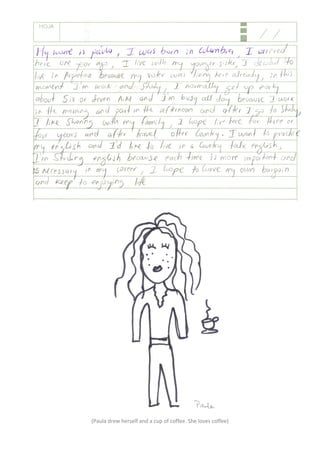 HOJA
/ /
My name is paula, I was born in Colombia, I arrived
here one year ago, I live with my younger sister, I decided to
live in Argentina because my sister was living here already, in this
moment I'm work and Study, I normally get up early
about Six or Seven AM and I'm busy all day because I work
in the morning and part in the afternoon and after I go to Study,
I like Sharing with my family, I hope live here for three or
four years and after travel other Country. I want to practice
my english and I'd like to live in a Country talk english,
I'm Studing english because each time is more important and
is necessary in my career, I hope to have my own
and keep to enjoying life
Paula
(Paula drew herself and a cup of coffee. She loves coffee)